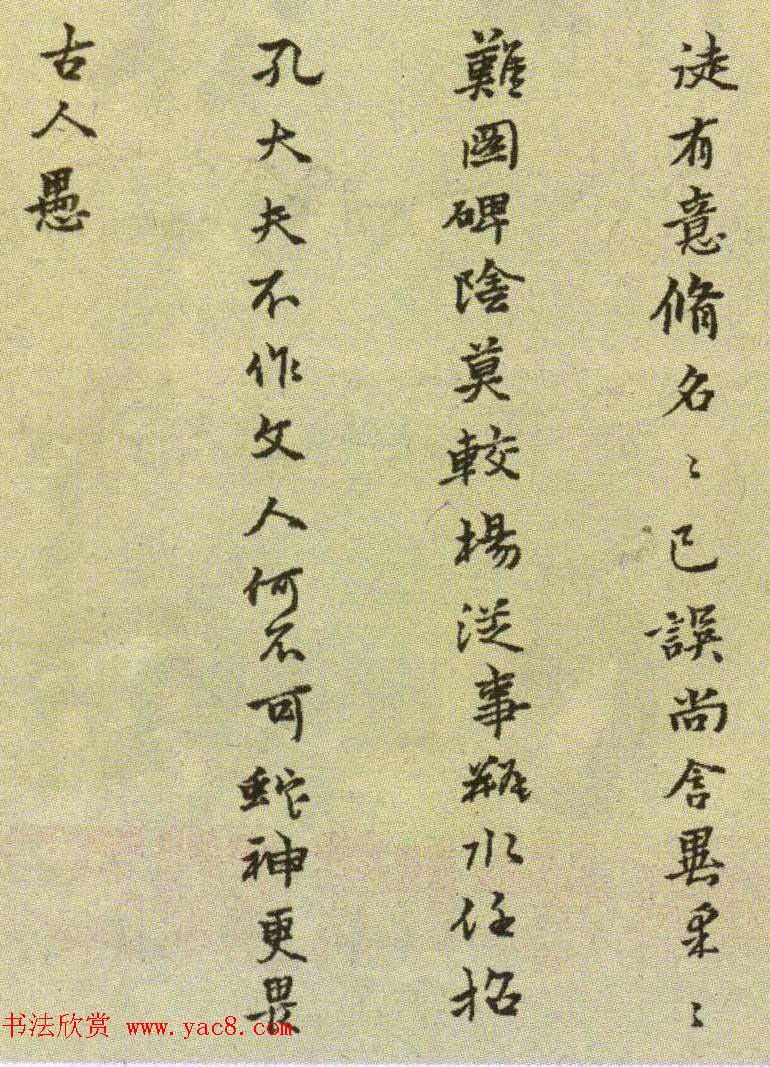 徒有意脩名〻已誤尚含異采〻
難圖碑陰莫較楊從事瓶水任招
孔大夫不作文人何不可蛇神更畏
古人愚
书法欣赏 www.yac8.com